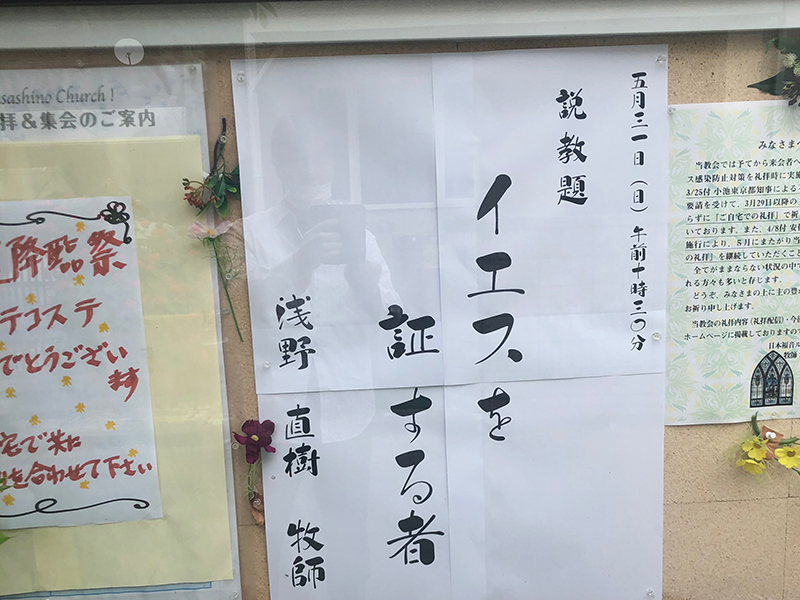 sashino Church !
拝&集会のご案内
降臨祭
テコステ
でとうござい
ます
宅で共に
を合わせて下さい
五月三一日（日）午前十時三〇分
説教題
イエスを
証する者
浅野 直樹 牧師
みなさまへ
当教会では予てから来会者へ
ス感染防止対策を礼拝時に実施
3/25付 小池東京都知事による
要請を受けて、3月29日以降の
らずに『ご自宅での礼拝』で祈
いております。また、4/8付 安倍
施行により、5月にまたがり当
の礼拝』を継続していただくこと
全てがままならない状況の中で
れる方々も多いと存じます。
どうぞ、みなさまの上に主の豊か
お祈り申し上げます。
当教会の礼拝内容（礼拝配信）・今後
ホームページに掲載しておりますので
日本福音ル
牧師